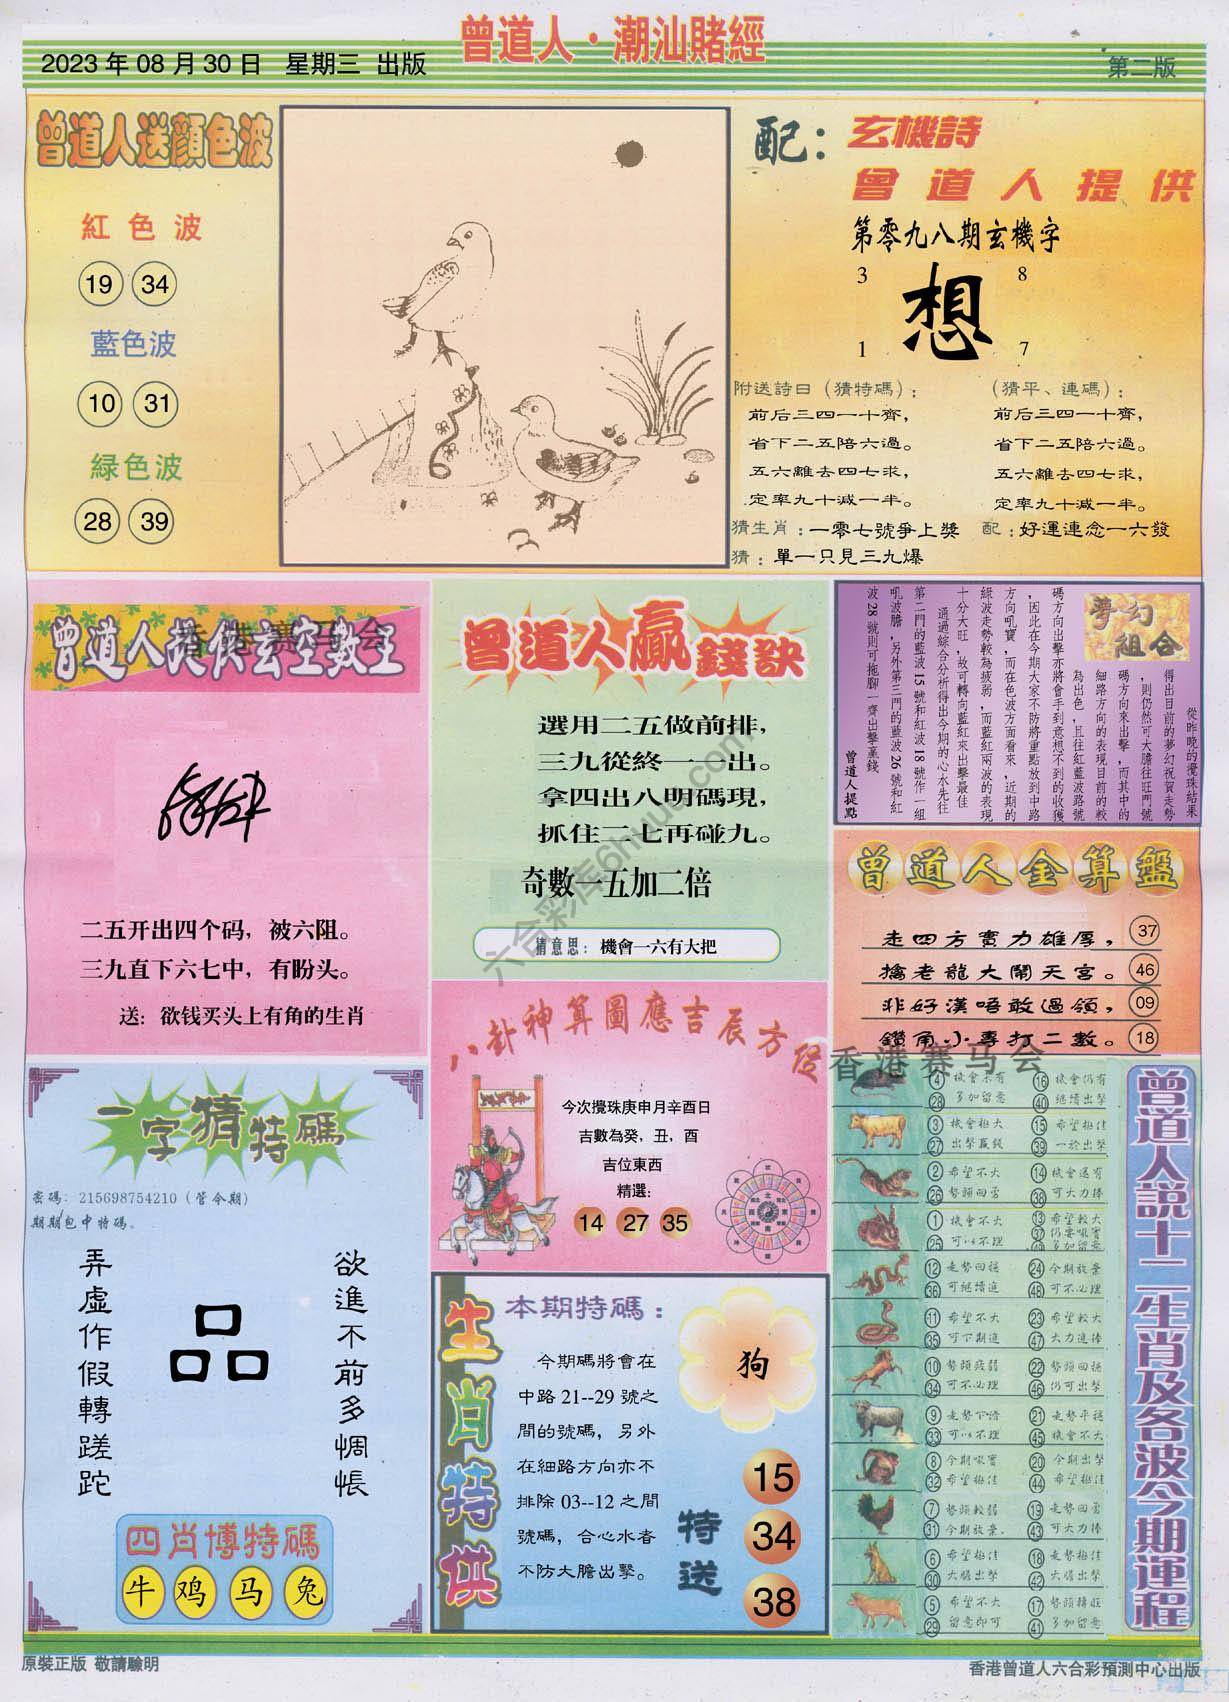 曾道人·潮汕賭經
2023 年 08 月 30 日 星期三 出版
第二版
曾道人送顏色波
紅色波
19 34
藍色波
10 31
緑色波
28 39
配：
玄機詩
曾道人提供
第零九八期玄機字
3 8
想
1 7
附送詩曰（猜特碼）：
前后三四一十齊，
省下二五陪六過。
五六離去四七求，
定率九十減一半。
（猜平、連碼）：
前后三四一十齊，
省下二五陪六過。
五六離去四七求，
定率九十減一半。
猜生肖：一零七號爭上獎
配：好運連念一六發
猜：單一只見三九爆
曾道人提供玄空數王
香港赛马会
二五开出四个码，被六阻。
三九直下六七中，有盼头。
送：欲钱买头上有角的生肖
曾道人贏錢訣
選用二五做前排，
三九從終一一出。
拿四出八明碼現，
抓住二七再碰九。
奇數一五加二倍
猜意思：機會一六有大把
夢幻組合
從昨晚的攪珠結果
得出目前的夢幻祝賀走勢
，則仍然可大膽往旺門號
碼方向來出擊，而其中的
細路方向的表現目前的較
為出色，且往紅藍波路號
碼方向出擊亦將會手到意想不到的收獲
，因此在今期大家不防將重點放到中路
方向吼寶，而在色波方面看來，近期的
綠波走勢較為疲弱，而藍紅兩波的表現
十分大旺，故可轉向藍紅來出擊最佳
通過綜合分析得出今期的心水先往
第二門的藍波 15 號和紅波 18 號作一組
吼波膽，另外第三門的藍波 26 號和紅
波 28 號則可拖腳一齊出擊贏錢
曾道人提點
曾道人金算盤
走四方實力雄厚，37
擒老龍大鬧天宮。46
非好漢唔敢過領，09
鑽角小專打二數。18
香港赛马会
八卦神算圖應吉辰方位
今次攪珠庚申月辛酉日
吉數為癸，丑，酉
吉位東西
精選：
14 27 35
一字猜特碼
密碼：215698754210（管令期）
期期包中特碼。
欲進不前多惆悵
品
弄虛作假轉蹉跎
四肖博特碼
牛 鸡 马 兔
生肖特供
本期特碼：
今期碼將會在
中路 21--29 號之
間的號碼，另外
在細路方向亦不
排除 03--12 之間
號碼，合心水者
不防大膽出擊。
狗
特送
15
34
38
曾道人説十二生肖及各波今期運程
4 機會未有 16 機會仍有
28 多加留意 40 繼續出擊
3 機會極大 15 希望極佳
27 出擊贏錢 39 一於出擊
2 希望不大 14 機會還有
26 勢頭回勇 38 可大力捧
1 機會不大 13 希望較大
25 可以不理 37 仍要吼實
49 多加留意
12 走勢回穩 24 今期放棄
36 可繼續追 48 可不必理
11 希望不大 23 希望較大
35 可下期追 47 大力追捧
10 勢頭疲弱 22 勢頭回穩
34 可不必理 46 仍可出擊
9 走勢下滑 21 走勢平穩
33 可以不理 45 機會不大
8 今期吼實 20 今期出擊
32 希望極佳 44 希望極佳
7 勢頭較弱 19 走勢回勇
31 今期放棄. 43 可大力捧
6 希望極佳 18 走勢極佳
30 大膽出擊 42 大膽出擊
5 希望不大 17 勢頭轉旺
29 留意即可 41 多加留意
六合彩库6hvus.com
原裝正版 敬請驗明
香港曾道人六合彩預測中心出版